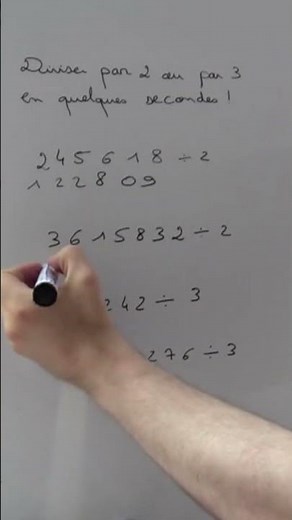 Diviser par 2 ou par 3
en quelques secondes !
245618 ÷ 2
122809
3615832 ÷ 2
242 ÷ 3
276 ÷ 3